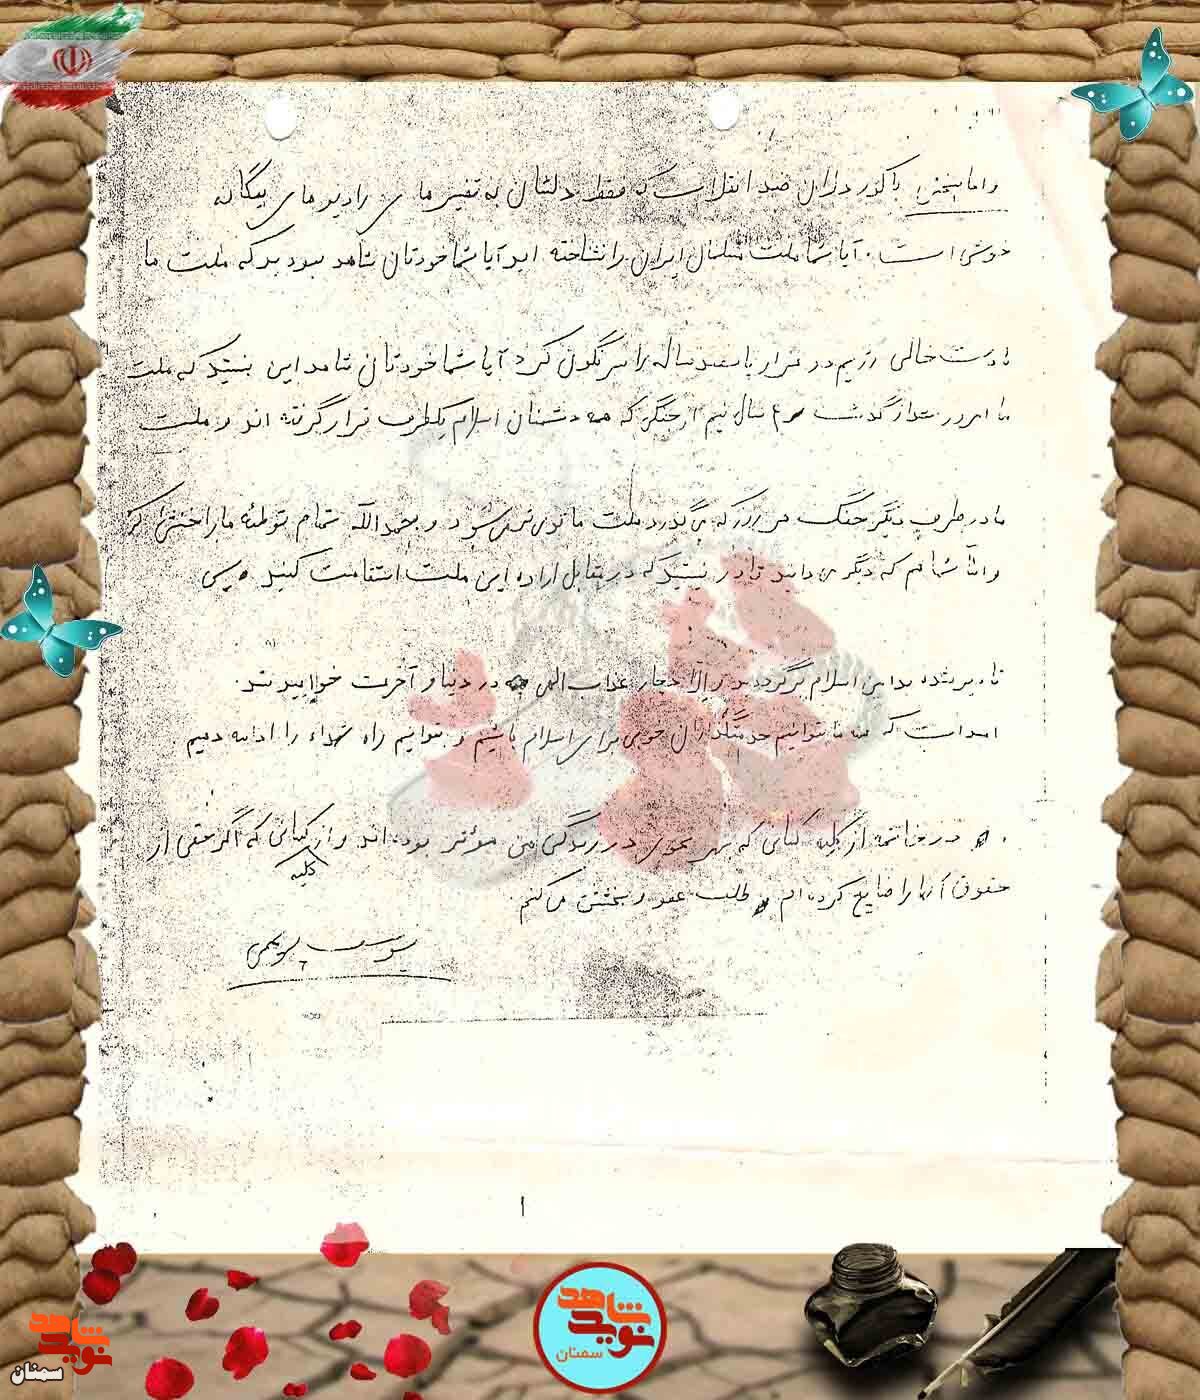 و اما سخنی با کوردلان ضد انقلاب که فقط دلشان به تفسیرهای رادیوهای بیگانه
خوش است. آیا شما ملت مسلمان ایران را نشناخته اید آیا شما خودتان شاهد نبودید که ملت ما
با دست خالی رژیم دو هزار پانصد ساله را سرنگون کرد آیا شما خودتان شاهد این نیستید که ملت
ما امروز بعد از گذشت سال نیم از جنگ که همه دشمنان اسلام یکطرف قرار گرفته اند و ملت
ما در طرف دیگر جنگ هر روز که می گذرد ملت ما قوی تر می شود و بحمدالله تمام توطئه ها را خنثی کرد
والله شما هم که دیگر می دانید قادر نیستید که در مقابل اراده این ملت استقامت کنید پس
تا دیر نشده به دامن اسلام برگردید و الا دچار عذاب الهی در دنیا و آخرت خواهید شد.
امید است که همه ما بتوانیم خدمتگذاران خوبی برای اسلام باشیم و بتوانیم راه شهداء را ادامه دهیم
در خاتمه از کلیه کسانی که بهر نحوی در زندگی من مؤثر بوده اند و از کلیه کسانی که اگر حقی از
حقوق آنها را ضایع کرده ام طلب عفو و بخشش می کنم.
یوسف
شاهد
نوید
سمنان
شاهد
نوید
سمنان